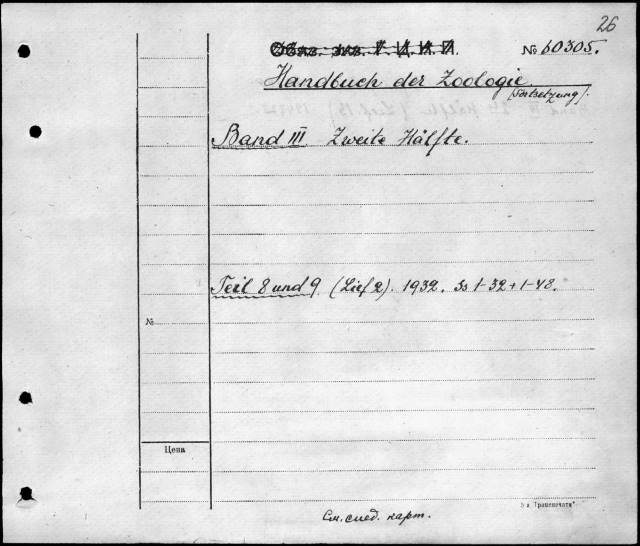 26
Обяз. экз.
№ 60305.
Handbuch der Zoologie
(Fortsetzung).
Band III. Zweite Hälfte.
Teil 8 und 9 (Lief 2). 1932. Ss 1-32 + 1-48.
№
Цена
5 л "Транспечати"
См. след. карт.